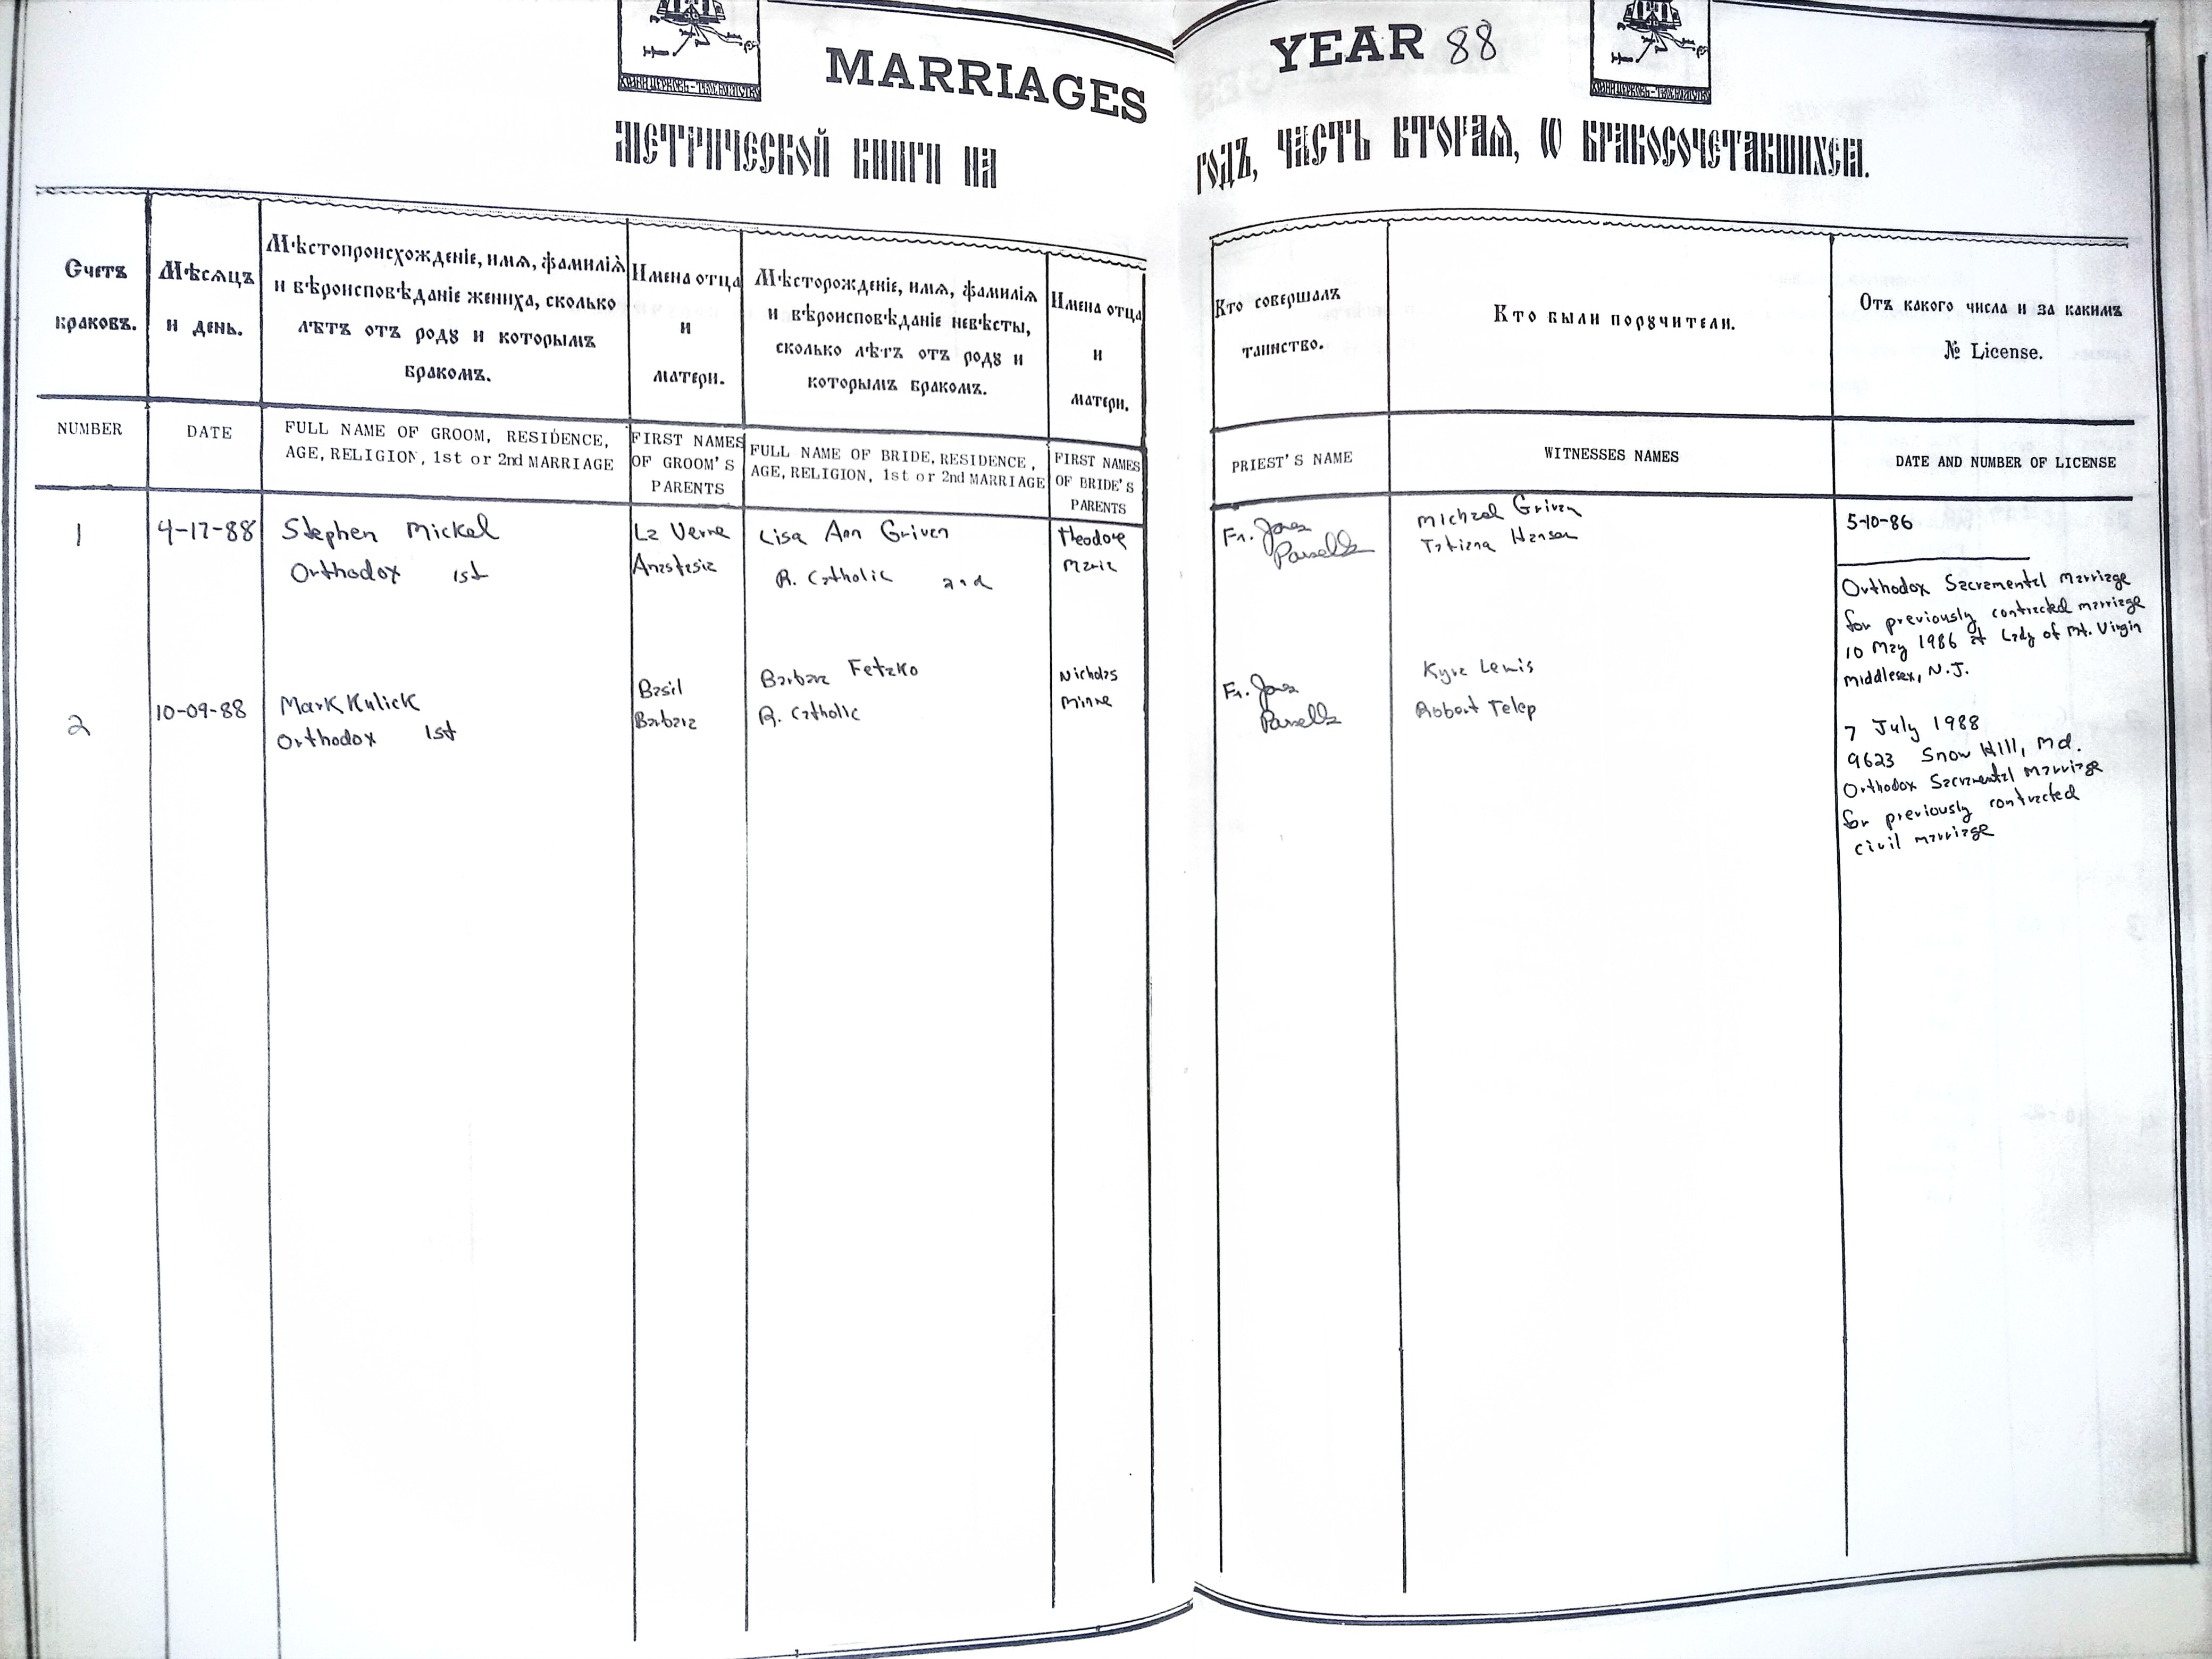 MARRIAGES
YEAR 88
МЕТРИЧЕСКОЙ КНИГИ НА
ГОДЪ, ЧАСТЬ ВТОРАЯ, Ѡ БРАКОСОЧЕТАВШИХСЯ.
Счетъ
браковъ.
Мѣсяцъ
и день.
Мѣстопроисхожденіе, имя, фамилія
и вѣроисповѣданіе жениха, сколько
лѣтъ отъ родꙋ и которымъ
бракомъ.
Имена отца
и
матери.
Мѣсторожденіе, имя, фамилія
и вѣроисповѣданіе невѣсты,
сколько лѣтъ отъ родꙋ и
которымъ бракомъ.
Имена отца
и
матери.
Кто совершалъ
таинство.
Кто были порꙋчители.
Отъ какого числа и за какимъ
№ License.
NUMBER
DATE
FULL NAME OF GROOM, RESIDENCE,
AGE, RELIGION, 1st or 2nd MARRIAGE
FIRST NAMES
OF GROOM'S
PARENTS
FULL NAME OF BRIDE, RESIDENCE,
AGE, RELIGION, 1st or 2nd MARRIAGE
FIRST NAMES
OF BRIDE'S
PARENTS
PRIEST'S NAME
WITNESSES NAMES
DATE AND NUMBER OF LICENSE
1
4-17-88
Stephen Mickel
Orthodox 1st
La Verne
Anastasia
Lisa Ann Griven
R. Catholic 2nd
Theodore
Marie
Fr. James
Parsells
Michael Griven
Tatiana Hansen
5-10-86
Orthodox Sacramental Marriage
for previously contracted marriage
10 May 1986 at Lady of Mt. Virgin
Middlesex, N.J.
2
10-09-88
Mark Kulick
Orthodox 1st
Basil
Barbara
Barbara Fetzko
R. Catholic
Nicholas
Minne
Fr. James
Parsells
Kyra Lewis
Robert Telep
7 July 1988
9623 Snow Hill, Md.
Orthodox Sacramental Marriage
for previously contracted
civil marriage